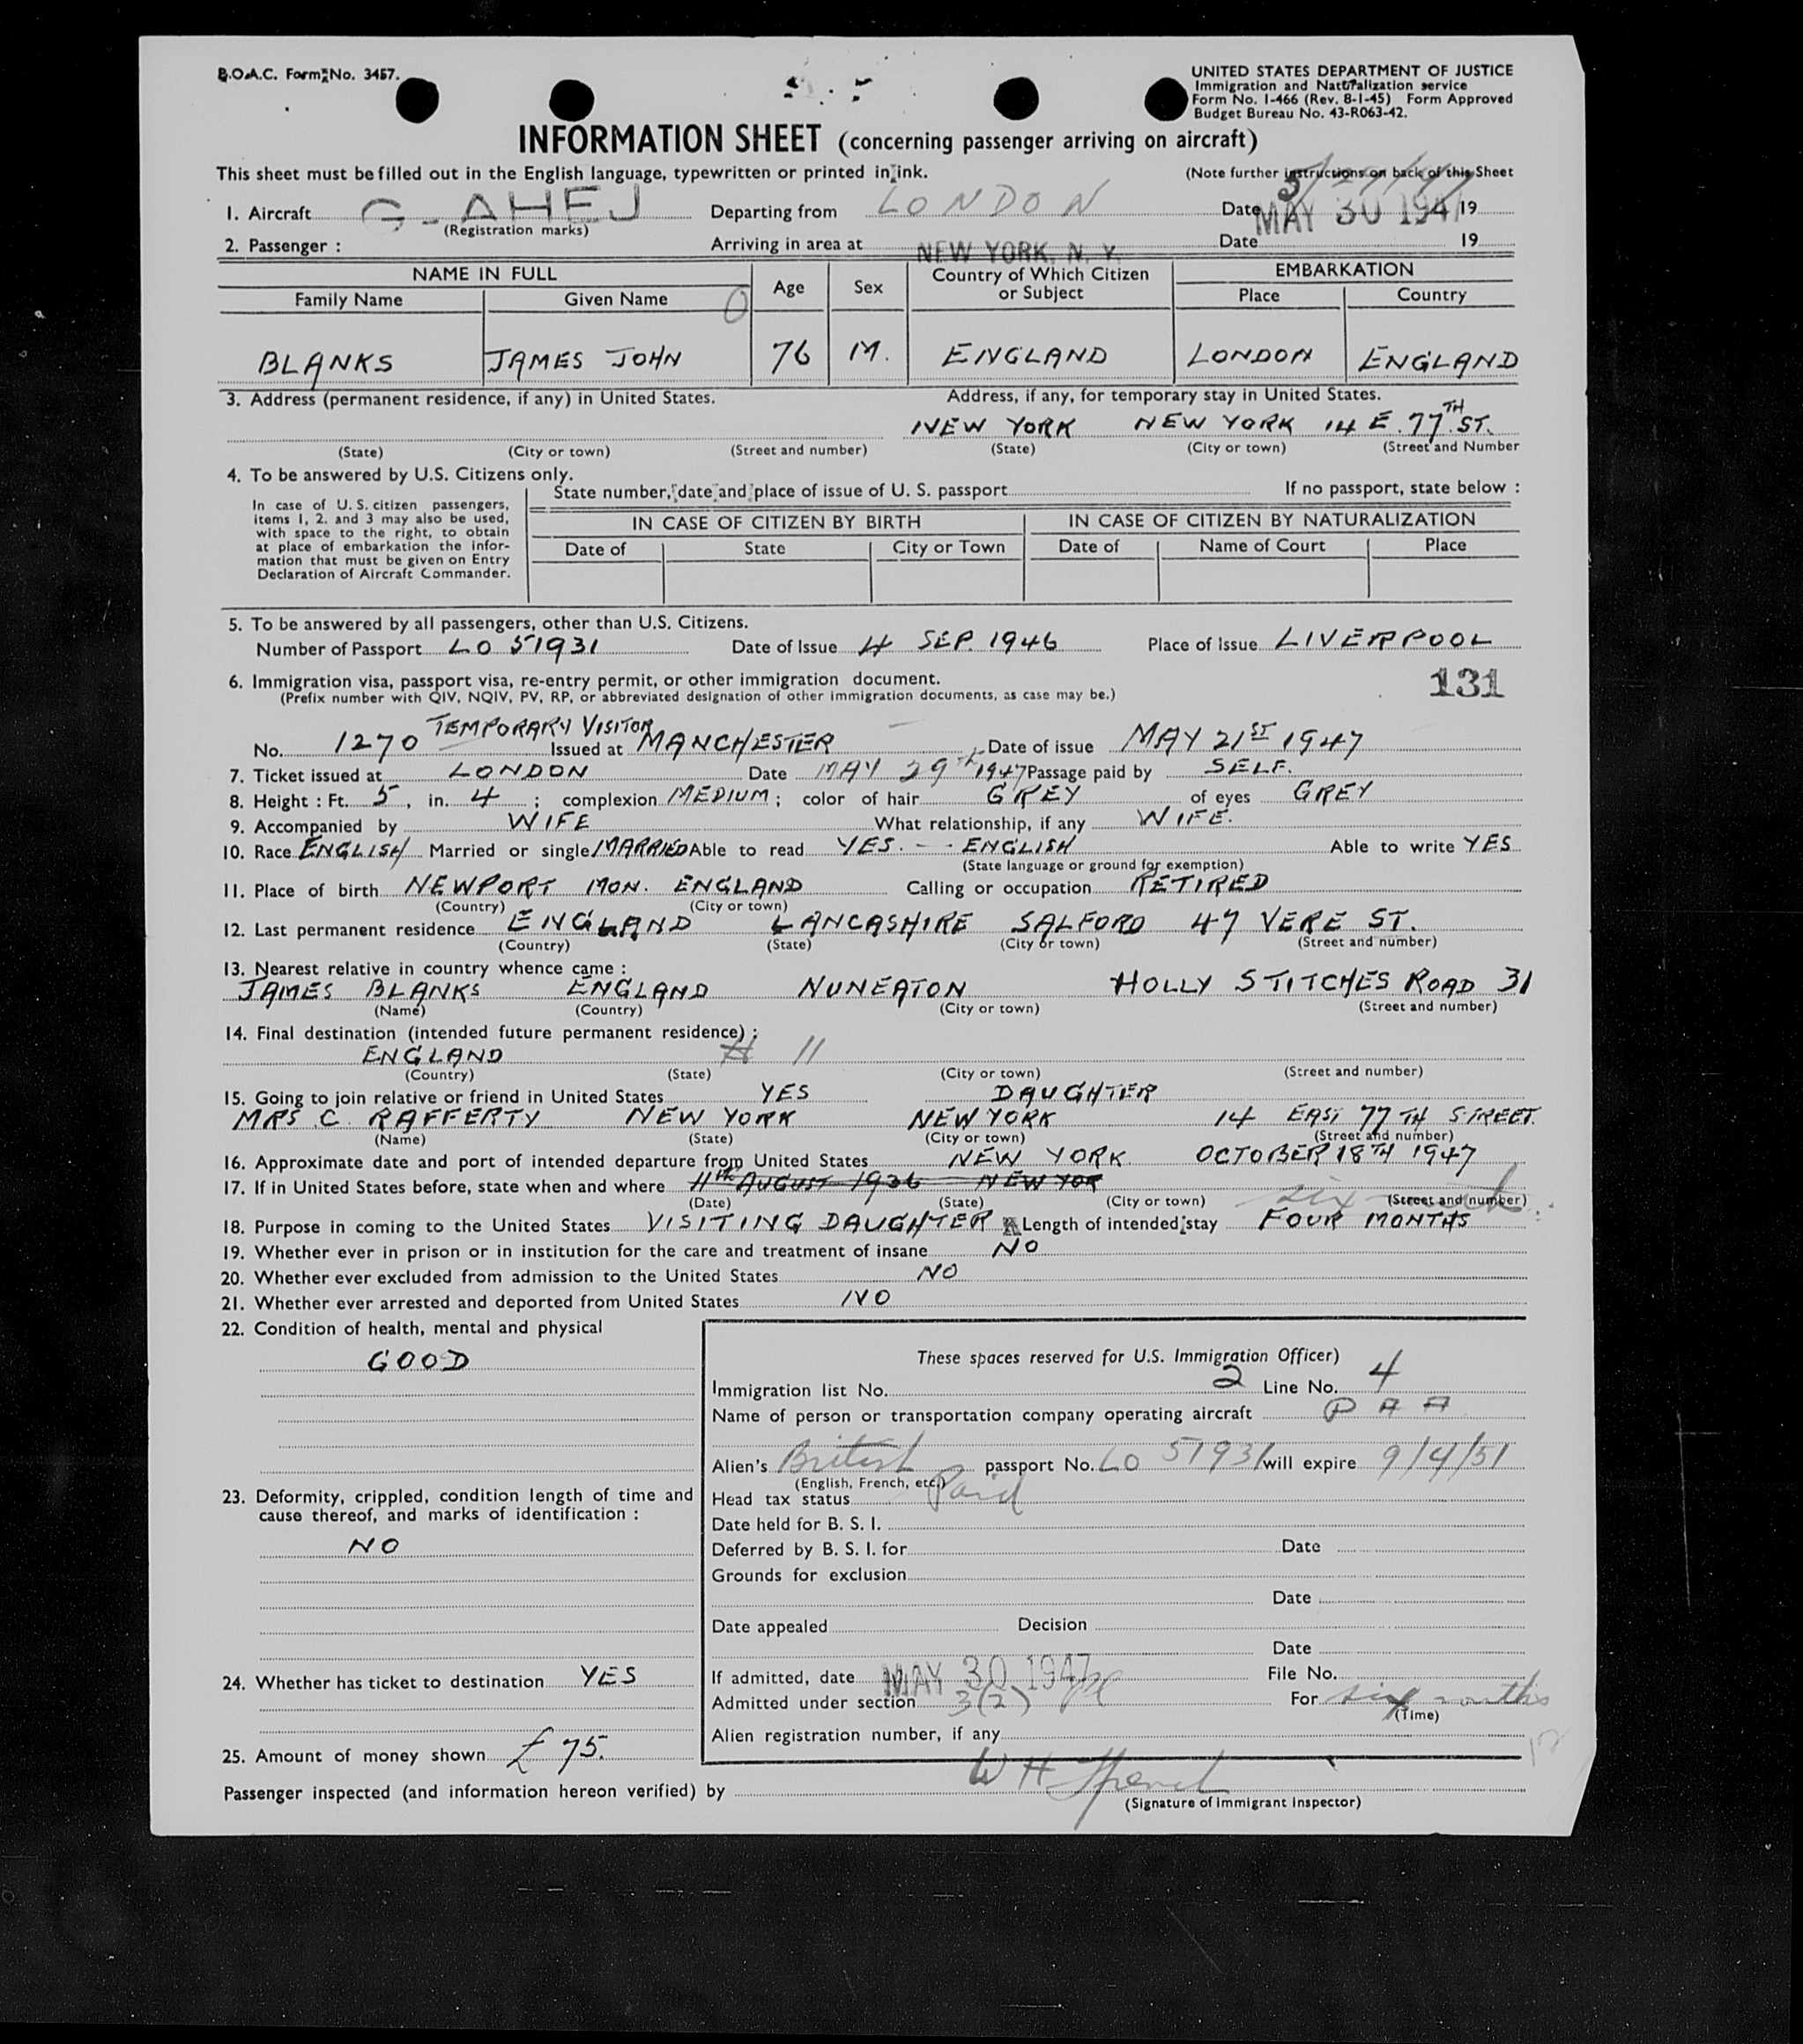 B.O.A.C. Form No. 3457.
UNITED STATES DEPARTMENT OF JUSTICE
Immigration and Naturalization service
Form No. I-466 (Rev. 8-1-45) Form Approved
Budget Bureau No. 43-R063-42.
INFORMATION SHEET (concerning passenger arriving on aircraft)
This sheet must be filled out in the English language, typewritten or printed in ink. (Note further instructions on back of this Sheet
1. Aircraft G-AHEJ Departing from LONDON Date MAY 30 1947 19
(Registration marks)
2. Passenger : Arriving in area at NEW YORK, N. Y. Date 19
NAME IN FULL Age Sex Country of Which Citizen or Subject EMBARKATION
Family Name Given Name Place Country
BLANKS JAMES JOHN 76 M. ENGLAND LONDON ENGLAND
3. Address (permanent residence, if any) in United States. Address, if any, for temporary stay in United States.
NEW YORK NEW YORK 14 E. 77TH ST.
(State) (City or town) (Street and number) (State) (City or town) (Street and Number
4. To be answered by U.S. Citizens only.
State number, date and place of issue of U. S. passport If no passport, state below :
In case of U. S. citizen passengers,
items 1, 2. and 3 may also be used,
with space to the right, to obtain
at place of embarkation the infor-
mation that must be given on Entry
Declaration of Aircraft Commander.
IN CASE OF CITIZEN BY BIRTH IN CASE OF CITIZEN BY NATURALIZATION
Date of State City or Town Date of Name of Court Place
5. To be answered by all passengers, other than U.S. Citizens.
Number of Passport LO 51931 Date of Issue 4 SEP. 1946 Place of issue LIVERPOOL
6. Immigration visa, passport visa, re-entry permit, or other immigration document.
(Prefix number with QIV, NQIV, PV, RP, or abbreviated designation of other immigration documents, as case may be.)
131
TEMPORARY VISITOR
No. 1270 Issued at MANCHESTER Date of issue MAY 21ST 1947
7. Ticket issued at LONDON Date MAY 29th 1947 Passage paid by SELF.
8. Height : Ft. 5, in. 4 ; complexion MEDIUM ; color of hair GREY of eyes GREY
9. Accompanied by WIFE What relationship, if any WIFE.
10. Race ENGLISH Married or single MARRIED Able to read YES. - - ENGLISH Able to write YES
(State language or ground for exemption)
11. Place of birth NEWPORT MON. ENGLAND Calling or occupation RETIRED
(Country) (City or town)
12. Last permanent residence ENGLAND LANCASHIRE SALFORD 47 VERE ST.
(Country) (State) (City or town) (Street and number)
13. Nearest relative in country whence came :
JAMES BLANKS ENGLAND NUNEATON HOLLY STITCHES ROAD 31
(Name) (Country) (City or town) (Street and number)
14. Final destination (intended future permanent residence) :
ENGLAND 11
(Country) (State) (City or town) (Street and number)
15. Going to join relative or friend in United States YES DAUGHTER
MRS. C. RAFFERTY NEW YORK NEW YORK 14 EAST 77TH STREET.
(Name) (State) (City or town) (Street and number)
16. Approximate date and port of intended departure from United States NEW YORK OCTOBER 18TH 1947
17. If in United States before, state when and where 11th AUGUST 1936 NEW YOR
(Date) (State) (City or town) (Street and number)
18. Purpose in coming to the United States VISITING DAUGHTER Length of intended stay FOUR MONTHS
19. Whether ever in prison or in institution for the care and treatment of insane NO
20. Whether ever excluded from admission to the United States NO
21. Whether ever arrested and deported from United States NO
22. Condition of health, mental and physical
GOOD
These spaces reserved for U.S. Immigration Officer)
Immigration list No. 2 Line No. 4
Name of person or transportation company operating aircraft P A A
Alien's British passport No. LO 51931 will expire 9/4/51
(English, French, etc.)
23. Deformity, crippled, condition length of time and
cause thereof, and marks of identification :
NO
Head tax status Paid
Date held for B. S. I.
Deferred by B. S. I. for Date
Grounds for exclusion
Date
Date appealed Decision
Date
24. Whether has ticket to destination YES
If admitted, date MAY 30 1947 File No.
Admitted under section 3(2) For six months
(Time)
Alien registration number, if any
25. Amount of money shown £75.
Passenger inspected (and information hereon verified) by W H
(Signature of Immigrant Inspector)